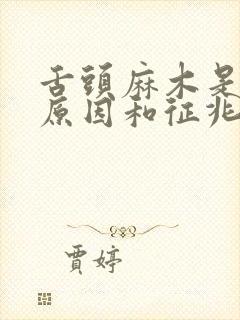 舌頭麻木是
原因和征兆
賈婷